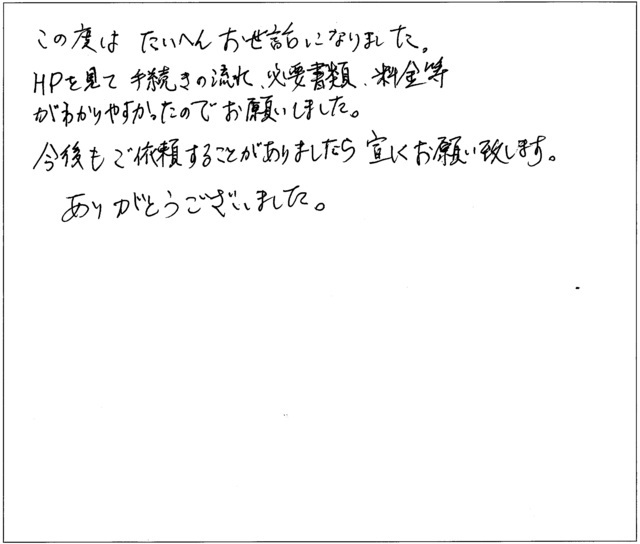 この度は たいへん お世話になりました。
HPを見て 手続きの流れ、必要書類、料金等
がわかりやすかったので お願いしました。
今後も ご依頼することがありましたら 宜しくお願い致します。
ありがとうございました。